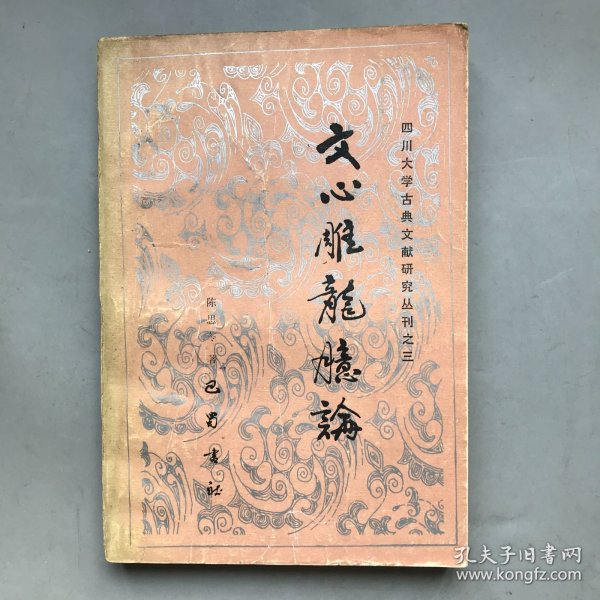 四川大学古典文献研究丛刊之三
文心雕龍臆論
陈思
巴蜀書社
孔夫子旧书网
www.kongfz.com